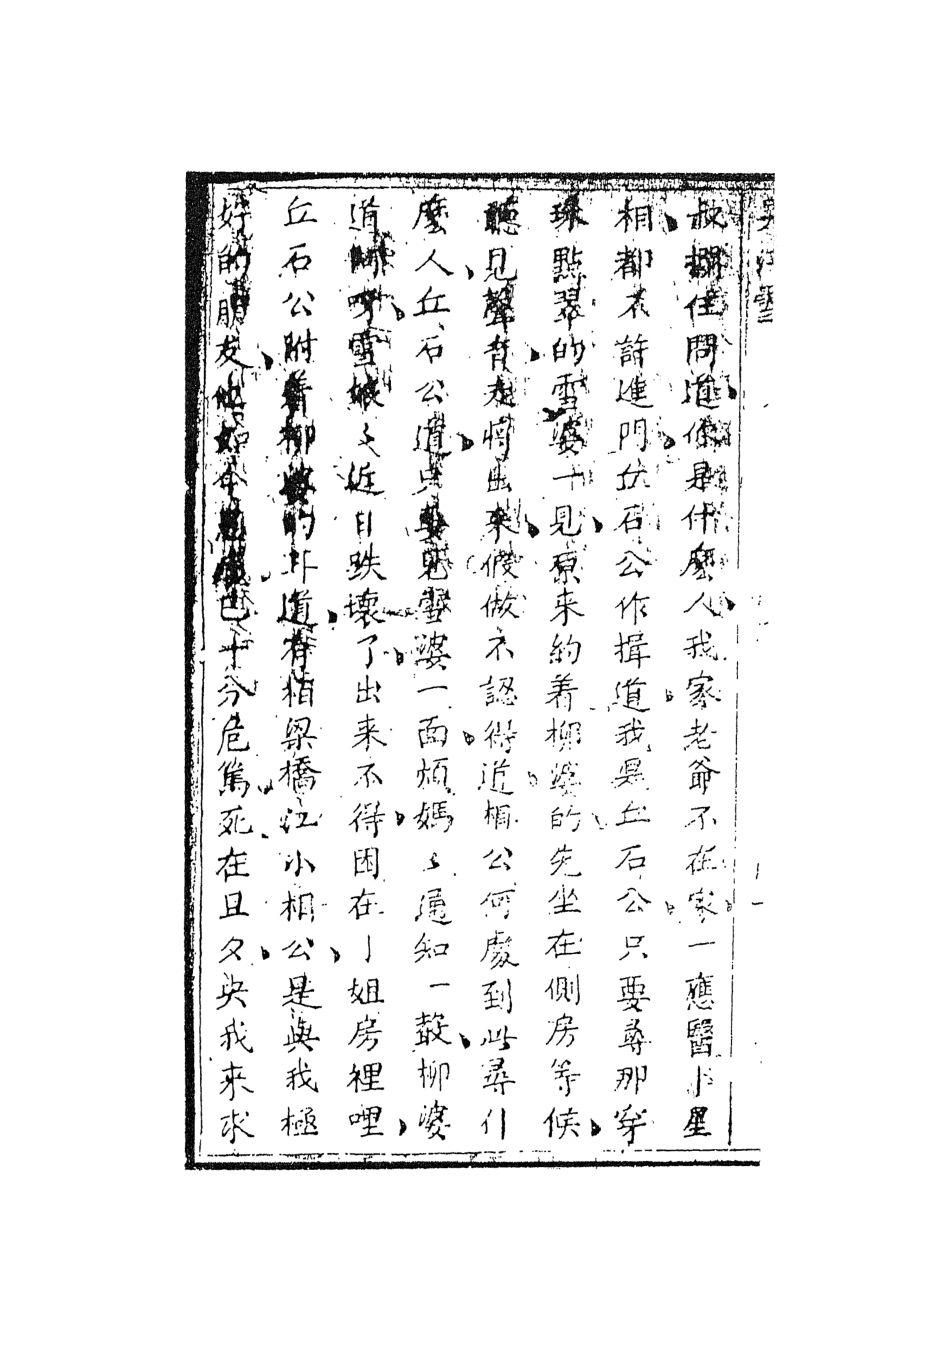 叔攔住問道你是什麼人我家老爺不在家一應醫卜星
相都不許進門丘石公作揖道我是丘石公只要尋那穿
珠點翠的雪婆一見原來約着柳婆的先坐在側房等候
聽見聲音走將出來假做不認得道相公何處到此尋什
麼人丘石公道只要見雪婆一面煩媽〻通知一聲柳婆
道阿呀雪娘〻近日跌壞了出来不得困在小姐房裡哩
丘石公附着柳婆的耳道有柏梁橋江小相公是與我極
好的朋友他如今已十分危篤死在旦夕央我來求